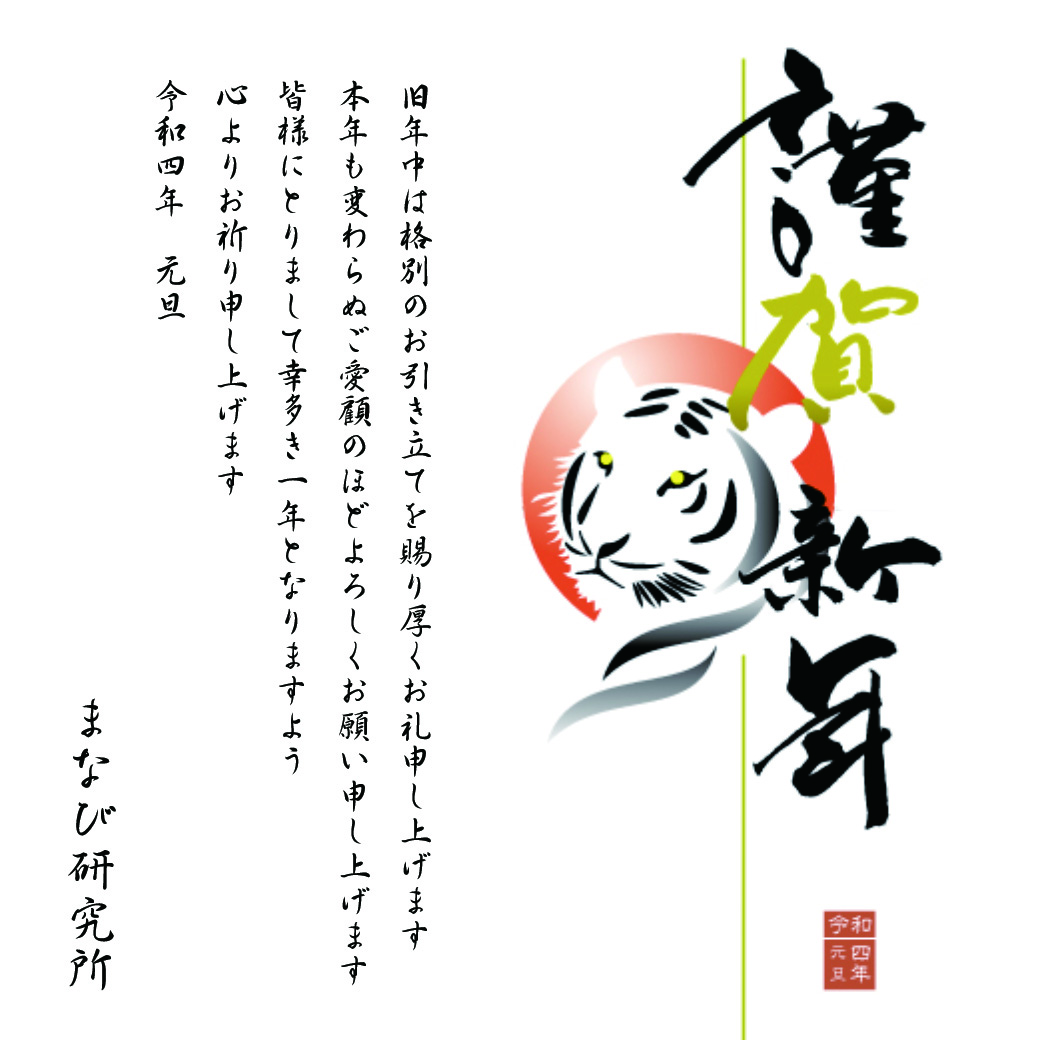 謹賀新年
令和四年元旦
旧年中は格別のお引き立てを賜り厚くお礼申し上げます
本年も変わらぬご愛顧のほどよろしくお願い申し上げます
皆様にとりまして幸多き一年となりますよう
心よりお祈り申し上げます
令和四年　元旦
まなび研究所